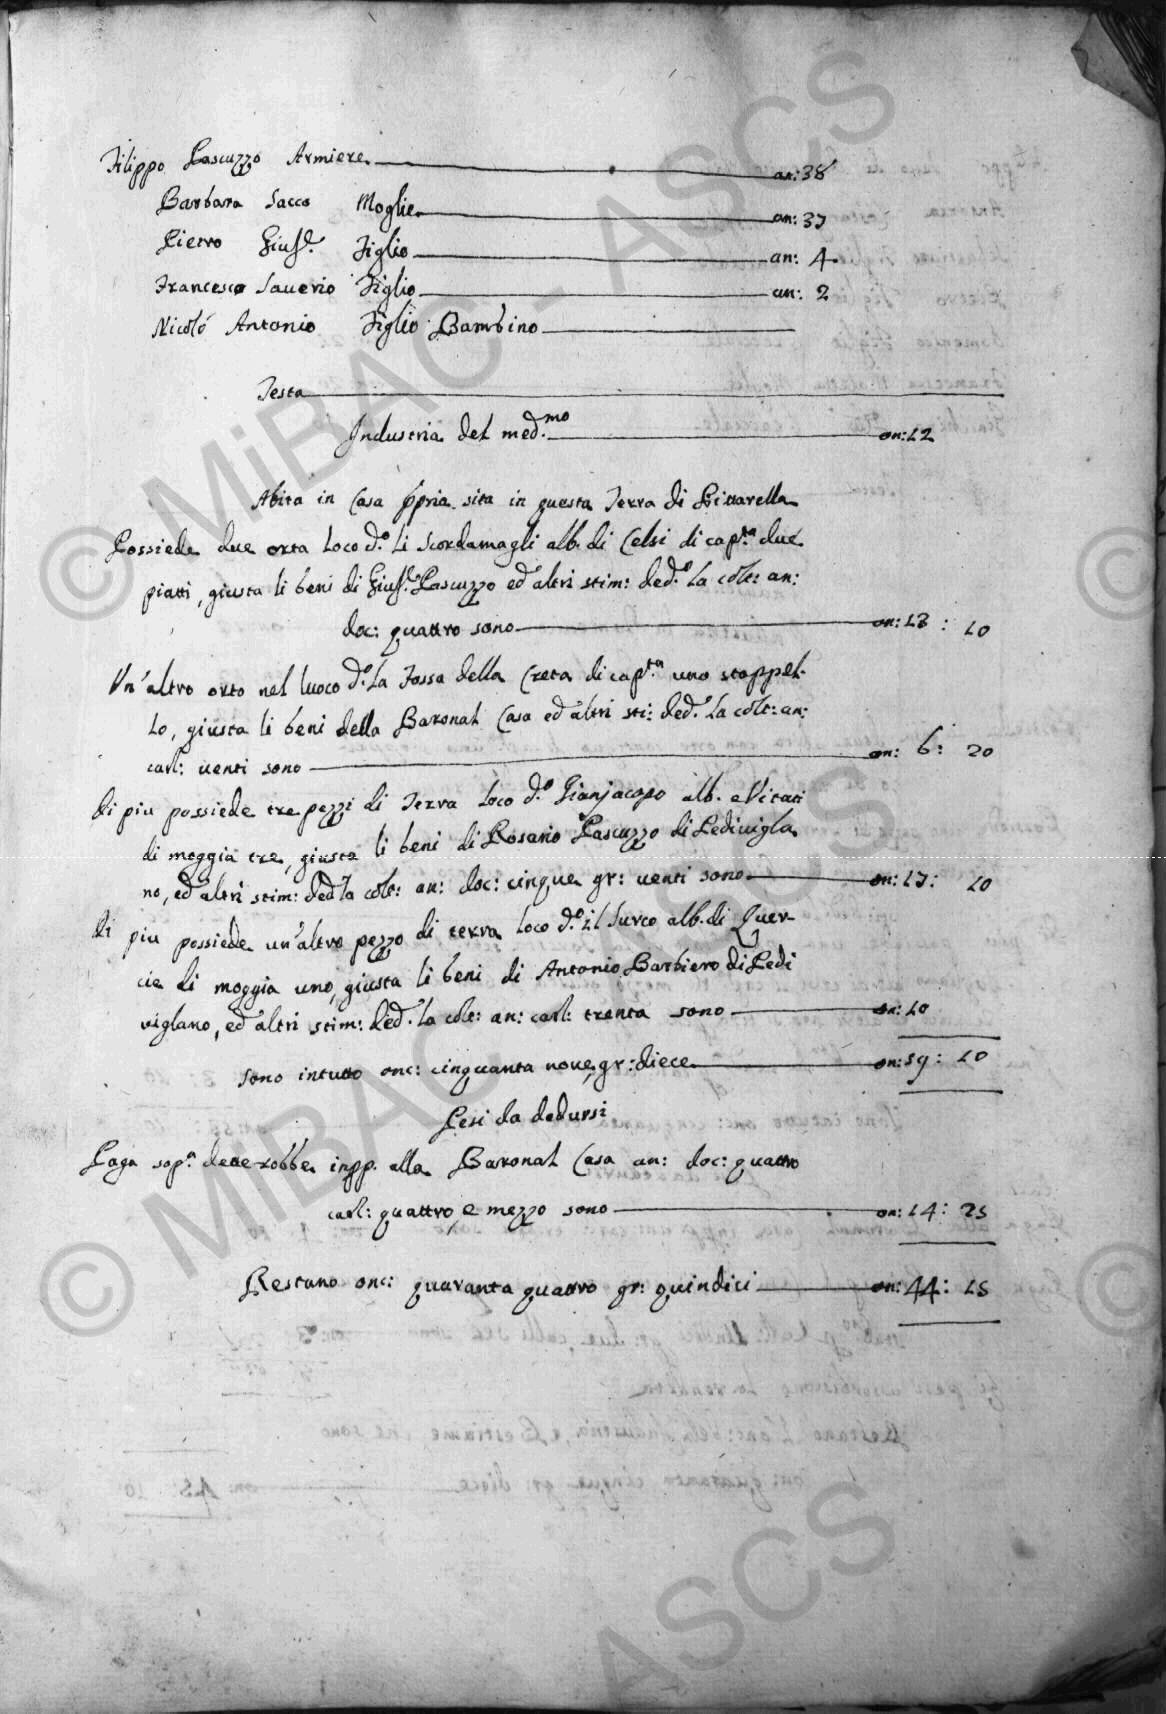 Filippo Pascuzzo Armiere an: 38
Barbara Sacco Moglie an: 37
Pietro Giuse. Figlio an: 4
Francesco Saverio Figlio an: 2
Nicoló Antonio Figlio Bambino
Testa
Industria del med.mo on: 12
Abita in Casa ppria sita in questa Terra di Pittarella
Possiede due orta loco d.o Li Scordamagli alb. di Celsi di cap.ta due
piatti, giusta li beni di Giuse. Pascuzzo ed altri stim: ded.o la colt: an:
doc: quattro sono on: 13 : 10
Un'altro orto nel luoco d.o La Fossa della Creta di cap.ta uno stoppel-
lo, giusta li beni della Baronal Casa ed altri sti: ded.o la colt: an:
carl: venti sono on: 6 : 20
di piu possiede tre pezzi di Terra loco d.o Gianjacopo alb. e Vitati
di moggia tre, giusta li beni di Rosario Pascuzzo di Pedivigla
no, ed altri stim: ded.o la colt: an: doc: cinque gr: venti sono on: 17 : 10
di piu possiede un'altro pezzo di terra loco d.o il Surco alb. di Quer-
cie di moggia uno, giusta li beni di Antonio Barbiero di Pedi
viglano, ed altri stim: ded.o la colt: an: carl: trenta sono on: 10
Sono intutto onc: cinquanta nove, gr: diece on: 59 : 10
Pesi da dedursi
Paga sop.a dette robbe inpp. alla Baronal Casa an: doc: quattro
carl: quattro, e mezzo sono on: 14 : 25
Restano onc: quaranta quattro gr: quindici on: 44 : 15
© MiBAC - ASCS
© MiBAC - ASCS
©
©
ASCS